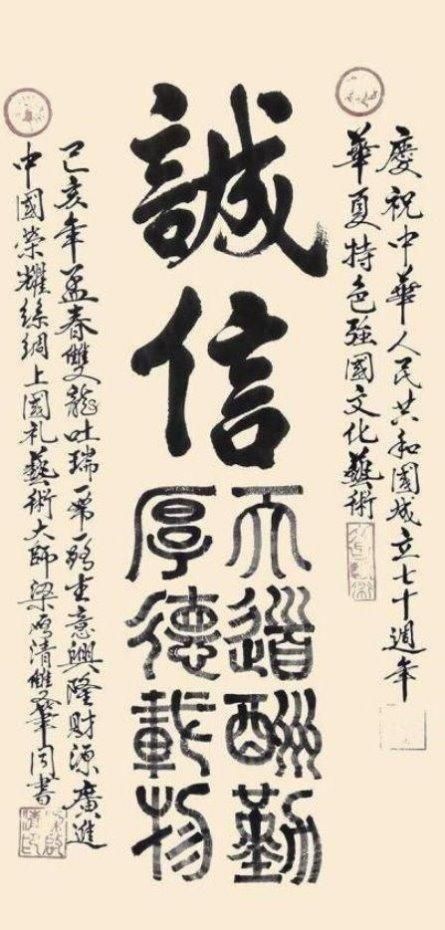 慶祝中華人民共和國成立七十週年
華夏特色強國文化藝術
誠信
天道酬勤
厚德載物
己亥年孟春雙龍吐瑞第一鵝生意興隆財源廣進
中國榮耀絲綢上國礼藝術大師梁